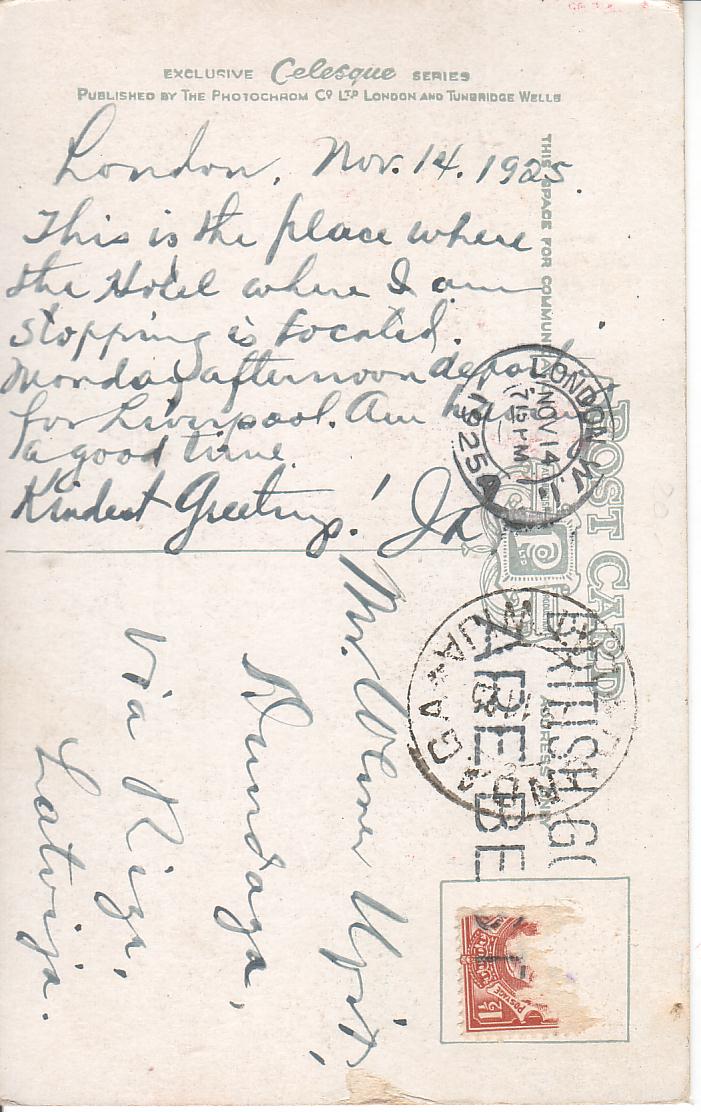 EXCLUSIVE Celesque SERIES
PUBLISHED BY THE PHOTOCHROM Cº LTD LONDON AND TUNBRIDGE WELLS
London, Nov. 14. 1925.
This is the place where
the Hotel where I am
stopping is located.
Monday afternoon depart
for Liverpool. Am
a good time.
Kindest Greetings!
THIS SPACE FOR COMMUN
POST CARD
ADDRESS ONLY
LONDON W.1.
7.15 PM
NOV 14
1925
BRITISH GO
ARE BE
POSTAGE
1½
Mr.
Dundaga,
via Riga,
Latvija.